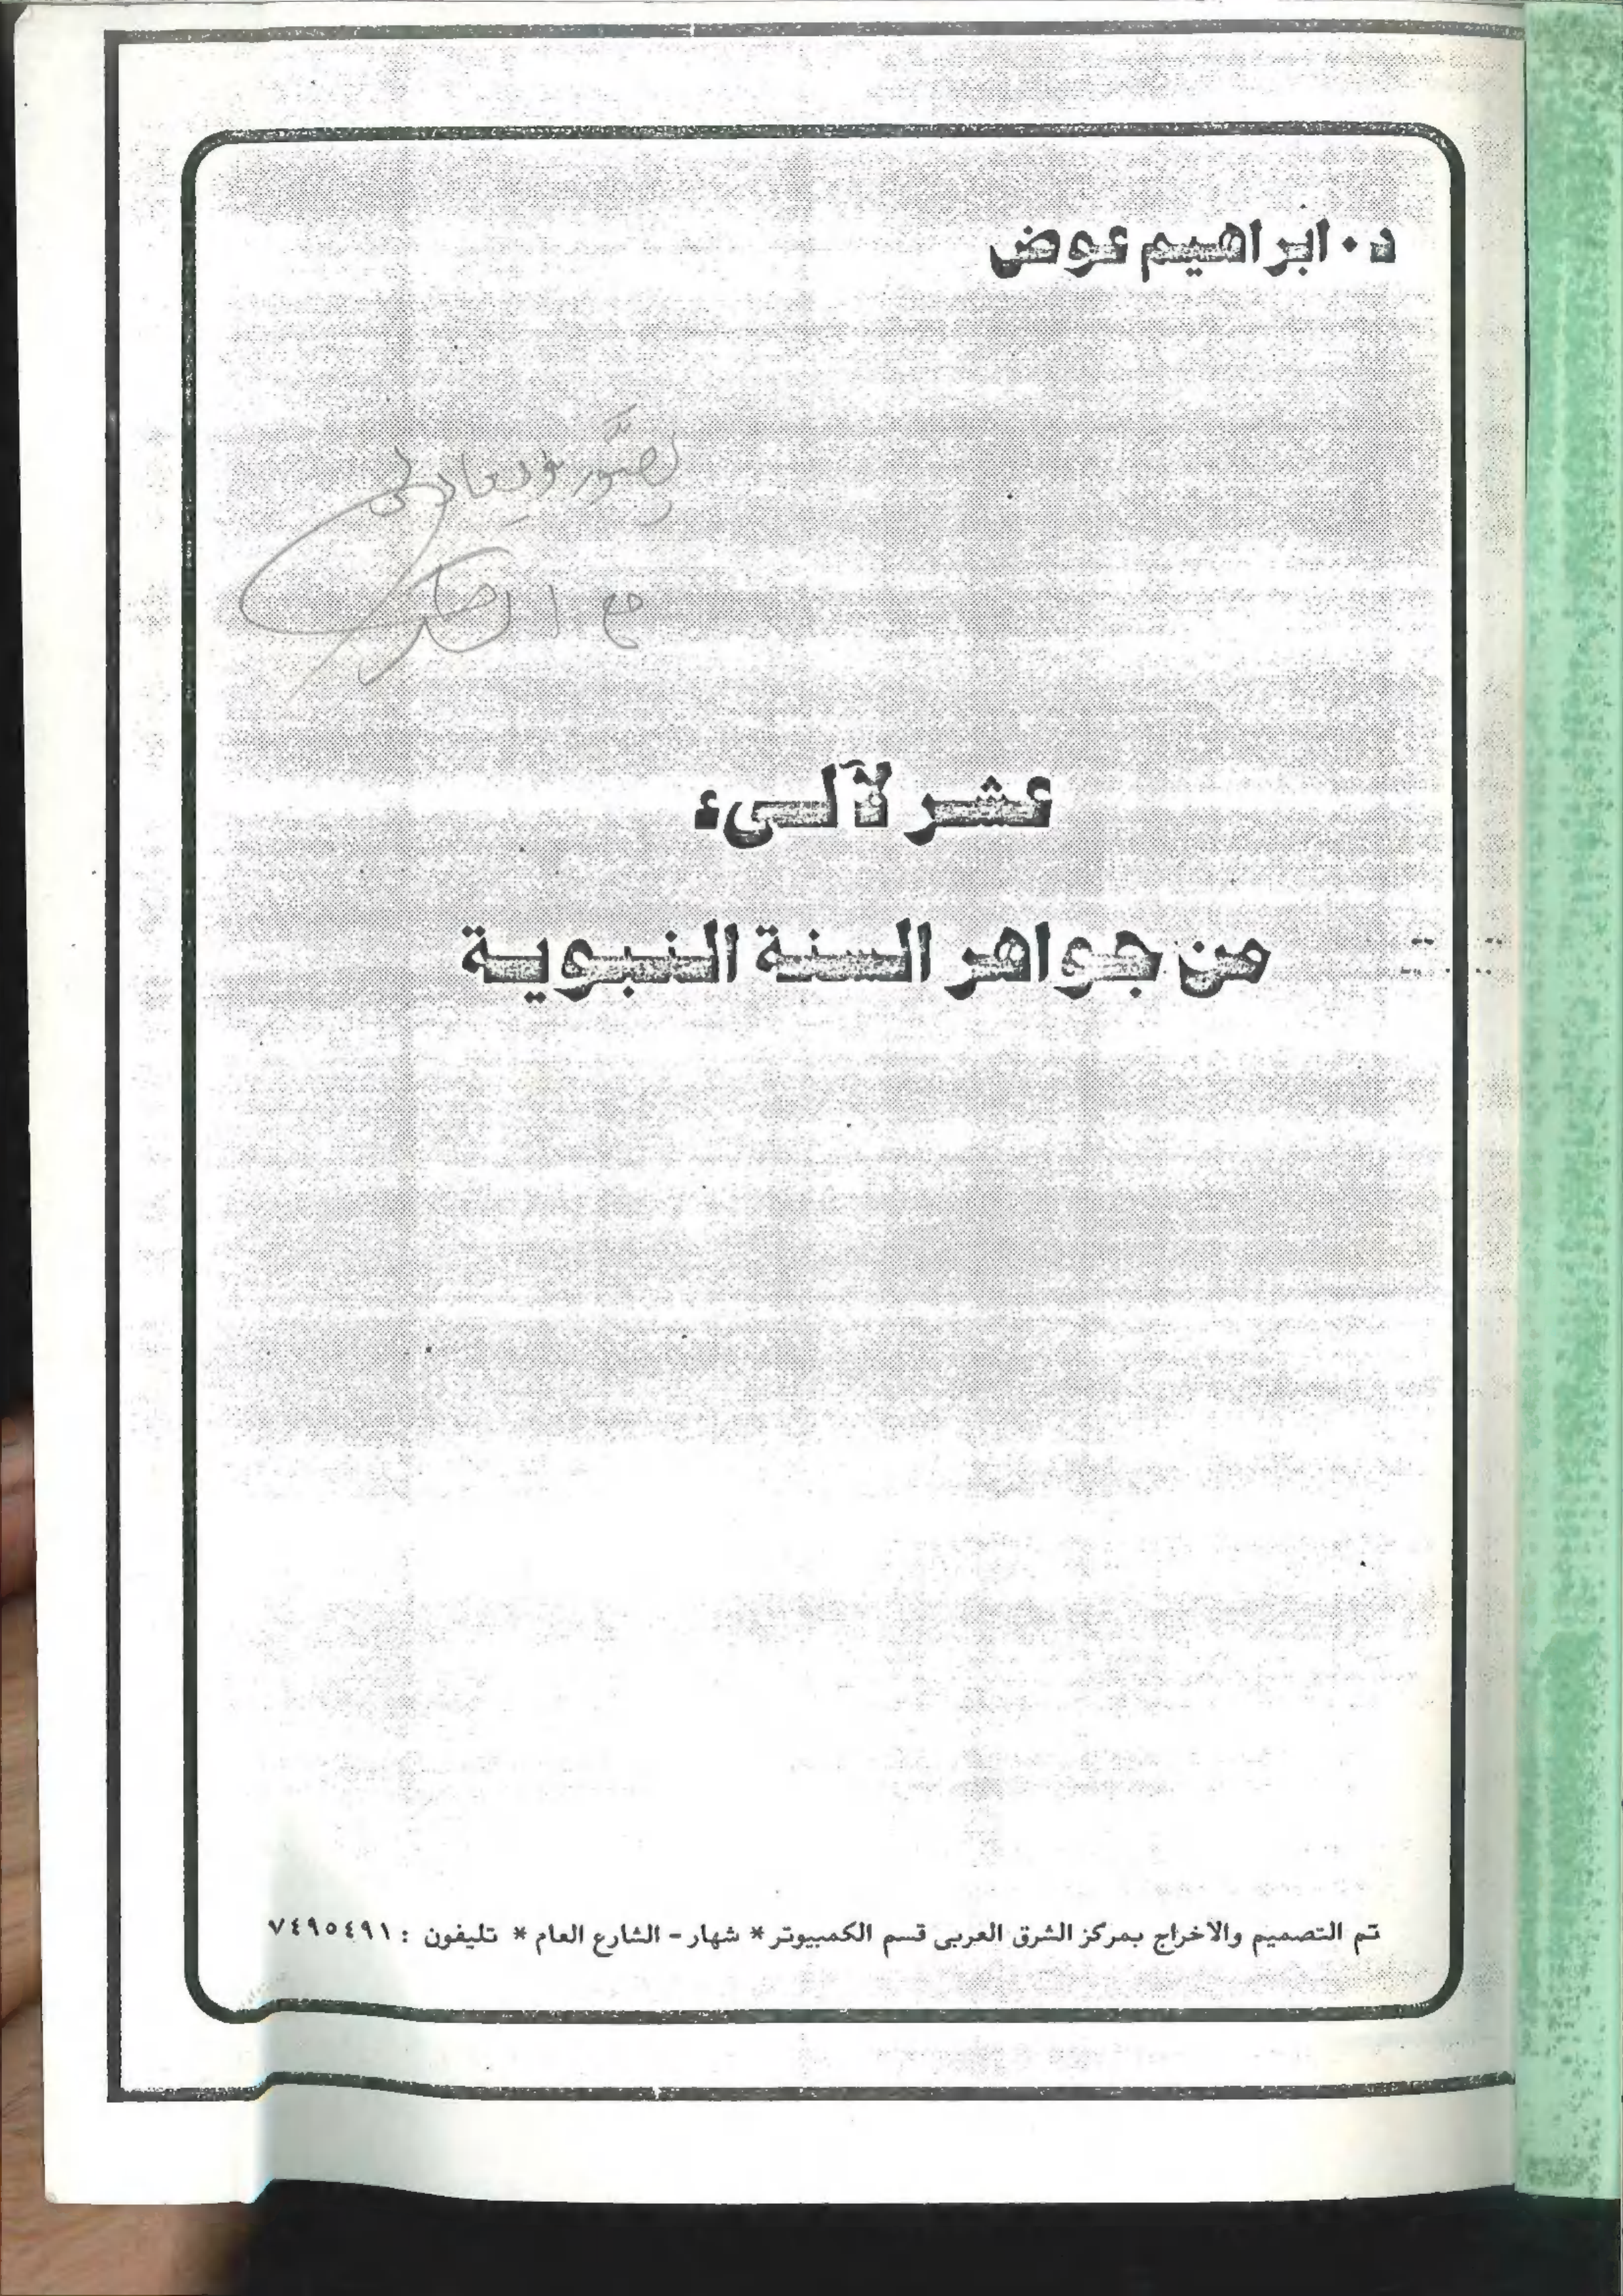 د. ابراهيم عوض
يصور ويعاد لي
مع الشكر
عشر لآلىء
من جواهر السنة النبوية
تم التصميم والاخراج بمركز الشرق العربى قسم الكمبيوتر * شهار - الشارع العام * تليفون : ٧٤٩٥٤٩١